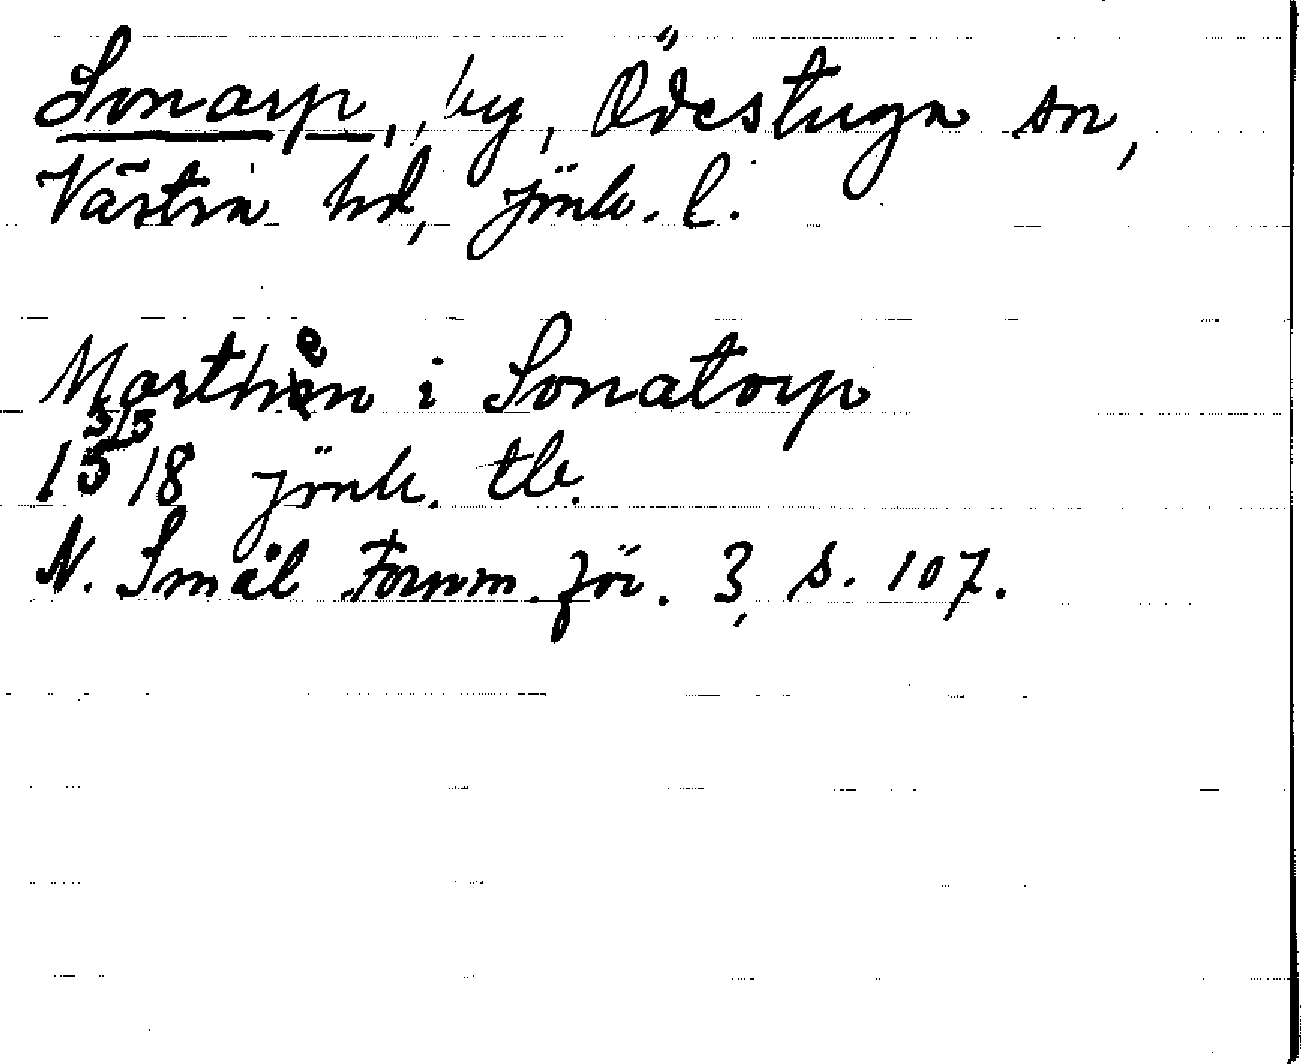 Sonarp, by, Ödestuga sn,
Västra hd, Jönk. l.
Marthen i Sonatorp
15 3/3 18 Jönk. tb.
N. Smål Fornm. för. 3, s. 107.